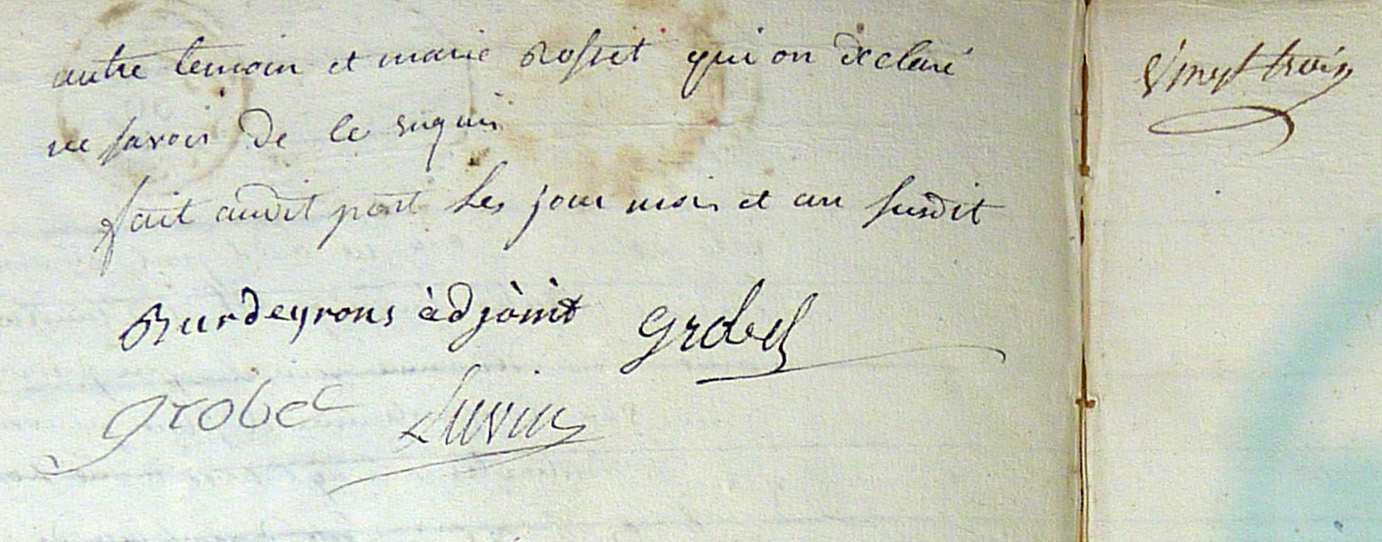 autre temoin et marie Rosset qui on declaré
ne savoir de le
fait audit port les jour mois et an susdit
Burdeyrons àdjòint grobel
grobel Luvin
Vingt trois